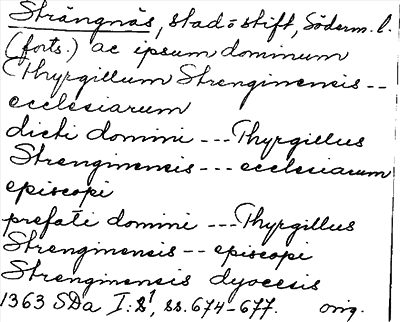 Strängnäs, stad o stift, Söderm. l.
(forts.) ac ipsum dominum
Thyrgillum Strenginensis --
ecclesiarum
dicti domini --- Thyrgillus
Strenginensis --- ecclesiarum
episcopi
prefati domini --- Thyrgillus
Strenginensis -- episcopi
Strenginensis dyocesis
1363 SDa I:1, ss. 674-677. orig.